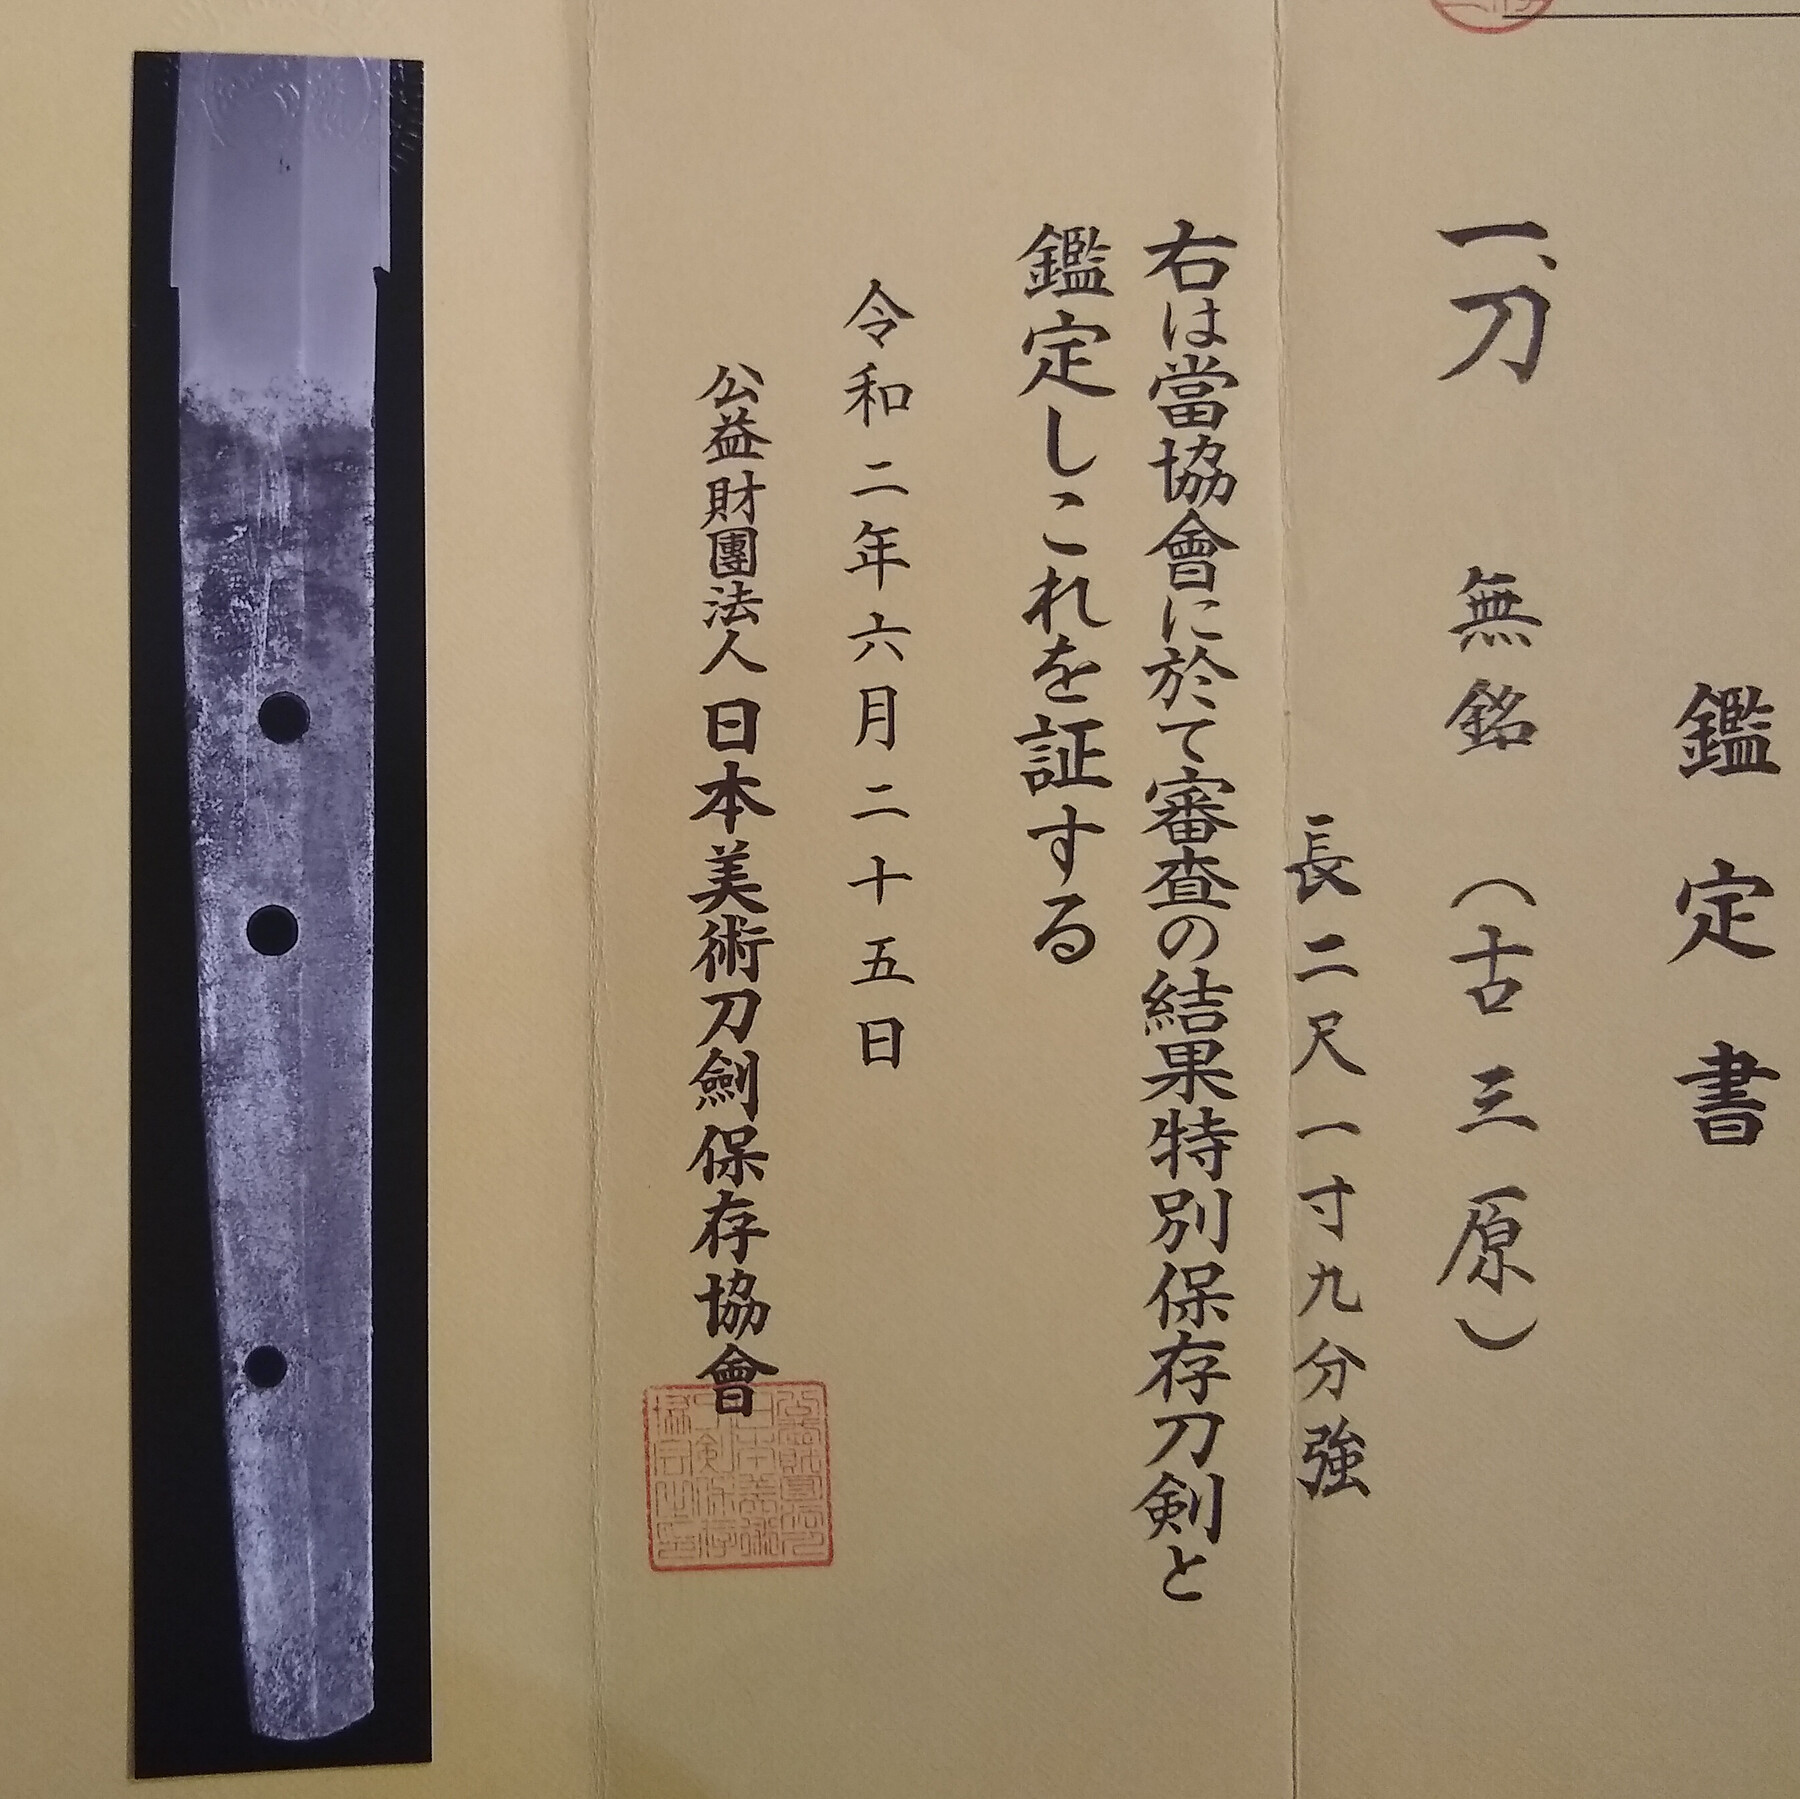 鑑定書
一、刀 無銘（古三原）
長二尺一寸九分強
右は當協會に於て審査の結果特別保存刀剣と
鑑定しこれを証する
令和二年六月二十五日
公益財團法人日本美術刀劍保存協會